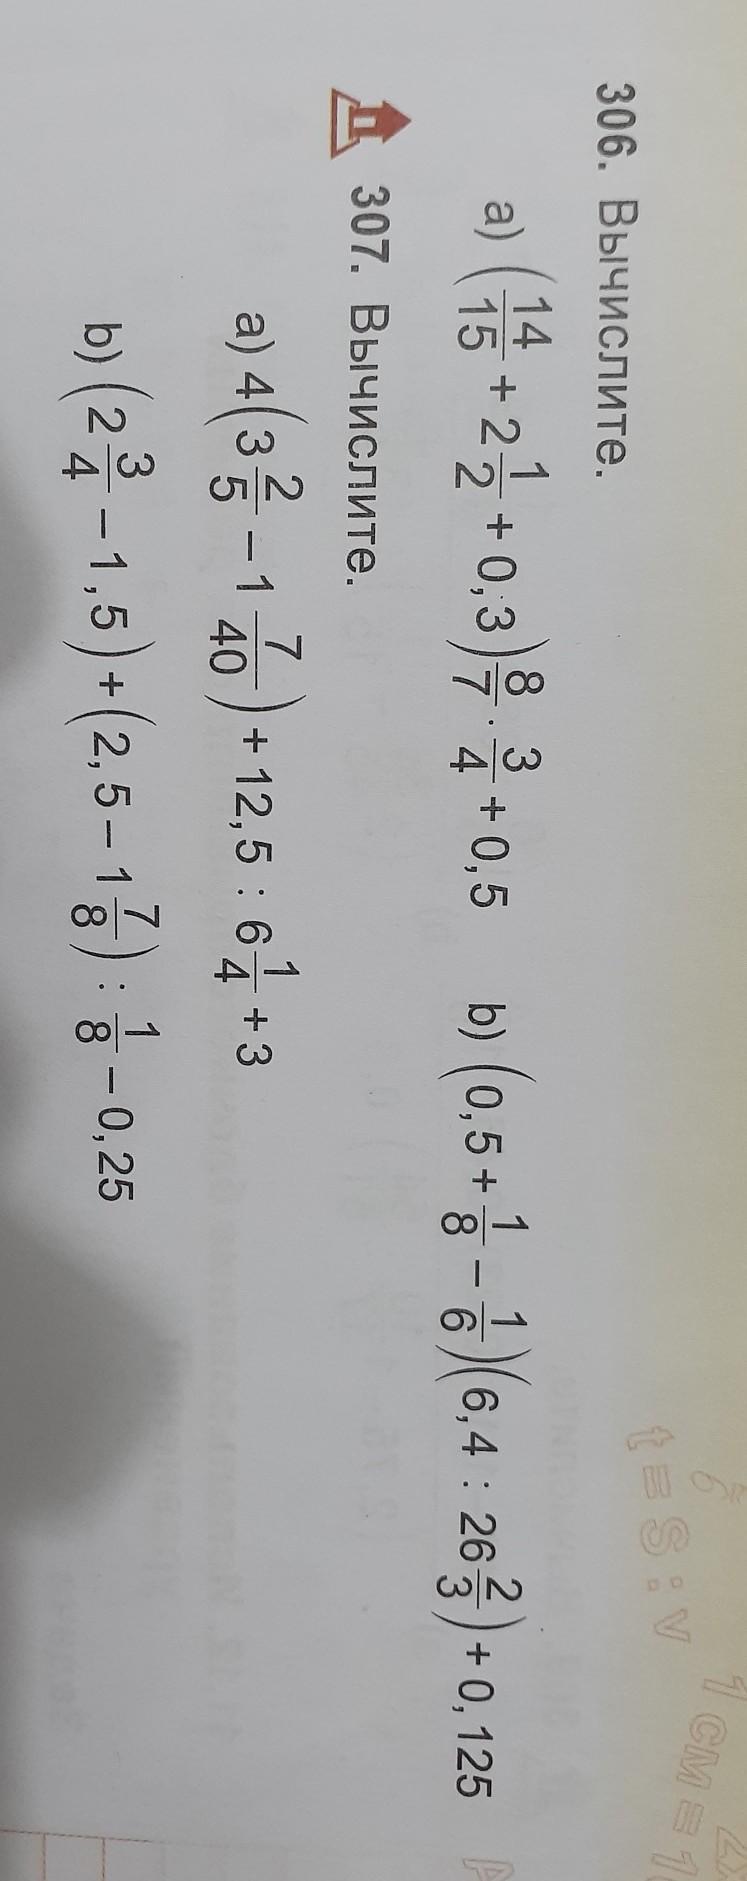 306. Вычислите.
a) (14/15 + 2 1/2 + 0,3) 8/7 · 3/4 + 0,5 b) (0,5 + 1/8 − 1/6)(6,4 : 26 2/3) + 0,125
307. Вычислите.
a) 4(3 2/5 − 1 7/40) + 12,5 : 6 1/4 + 3
b) (2 3/4 − 1,5) + (2,5 − 1 7/8) : 1/8 − 0,25
t = S : v
1 см = 1